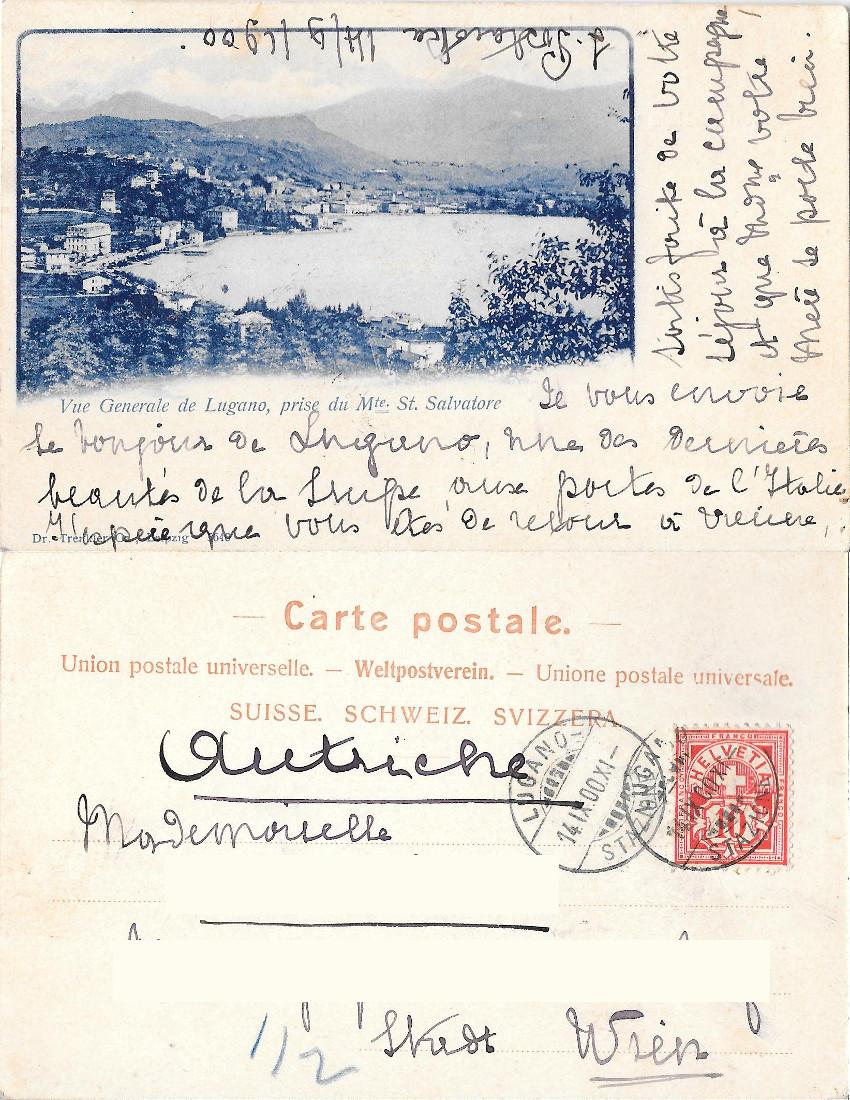 14/9/1900.
Vue Generale de Lugano, prise du Mte. St. Salvatore
Je vous envoie
le bonjour de Lugano, une des dernières
beautés de la Suisse aux portes de l'Italie
J'espère que vous êtes de retour à Vienne,
satisfaite de votre
séjour à la campagne,
et que Mme votre
Mère se porte bien.
Dr. Trenkler Co., Leipzig
— Carte postale. —
Union postale universelle. — Weltpostverein. — Unione postale universale.
SUISSE. SCHWEIZ. SVIZZERA.
Autriche
Mademoiselle
LUGANO
14.IX.00.XI
STAZ
FRANCO
HELVETIA
10
1/2
Stadt Wien